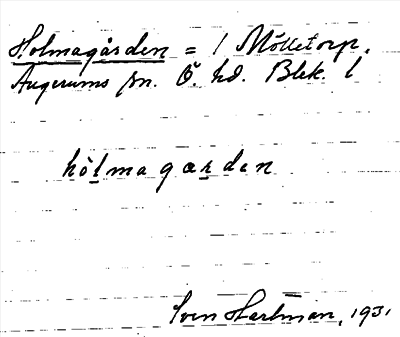 Holmagården = 1 Mölletorp.
Augerums sn. Ö. hd. Blek. l
hòlmagarden
Sven Hartman, 1931